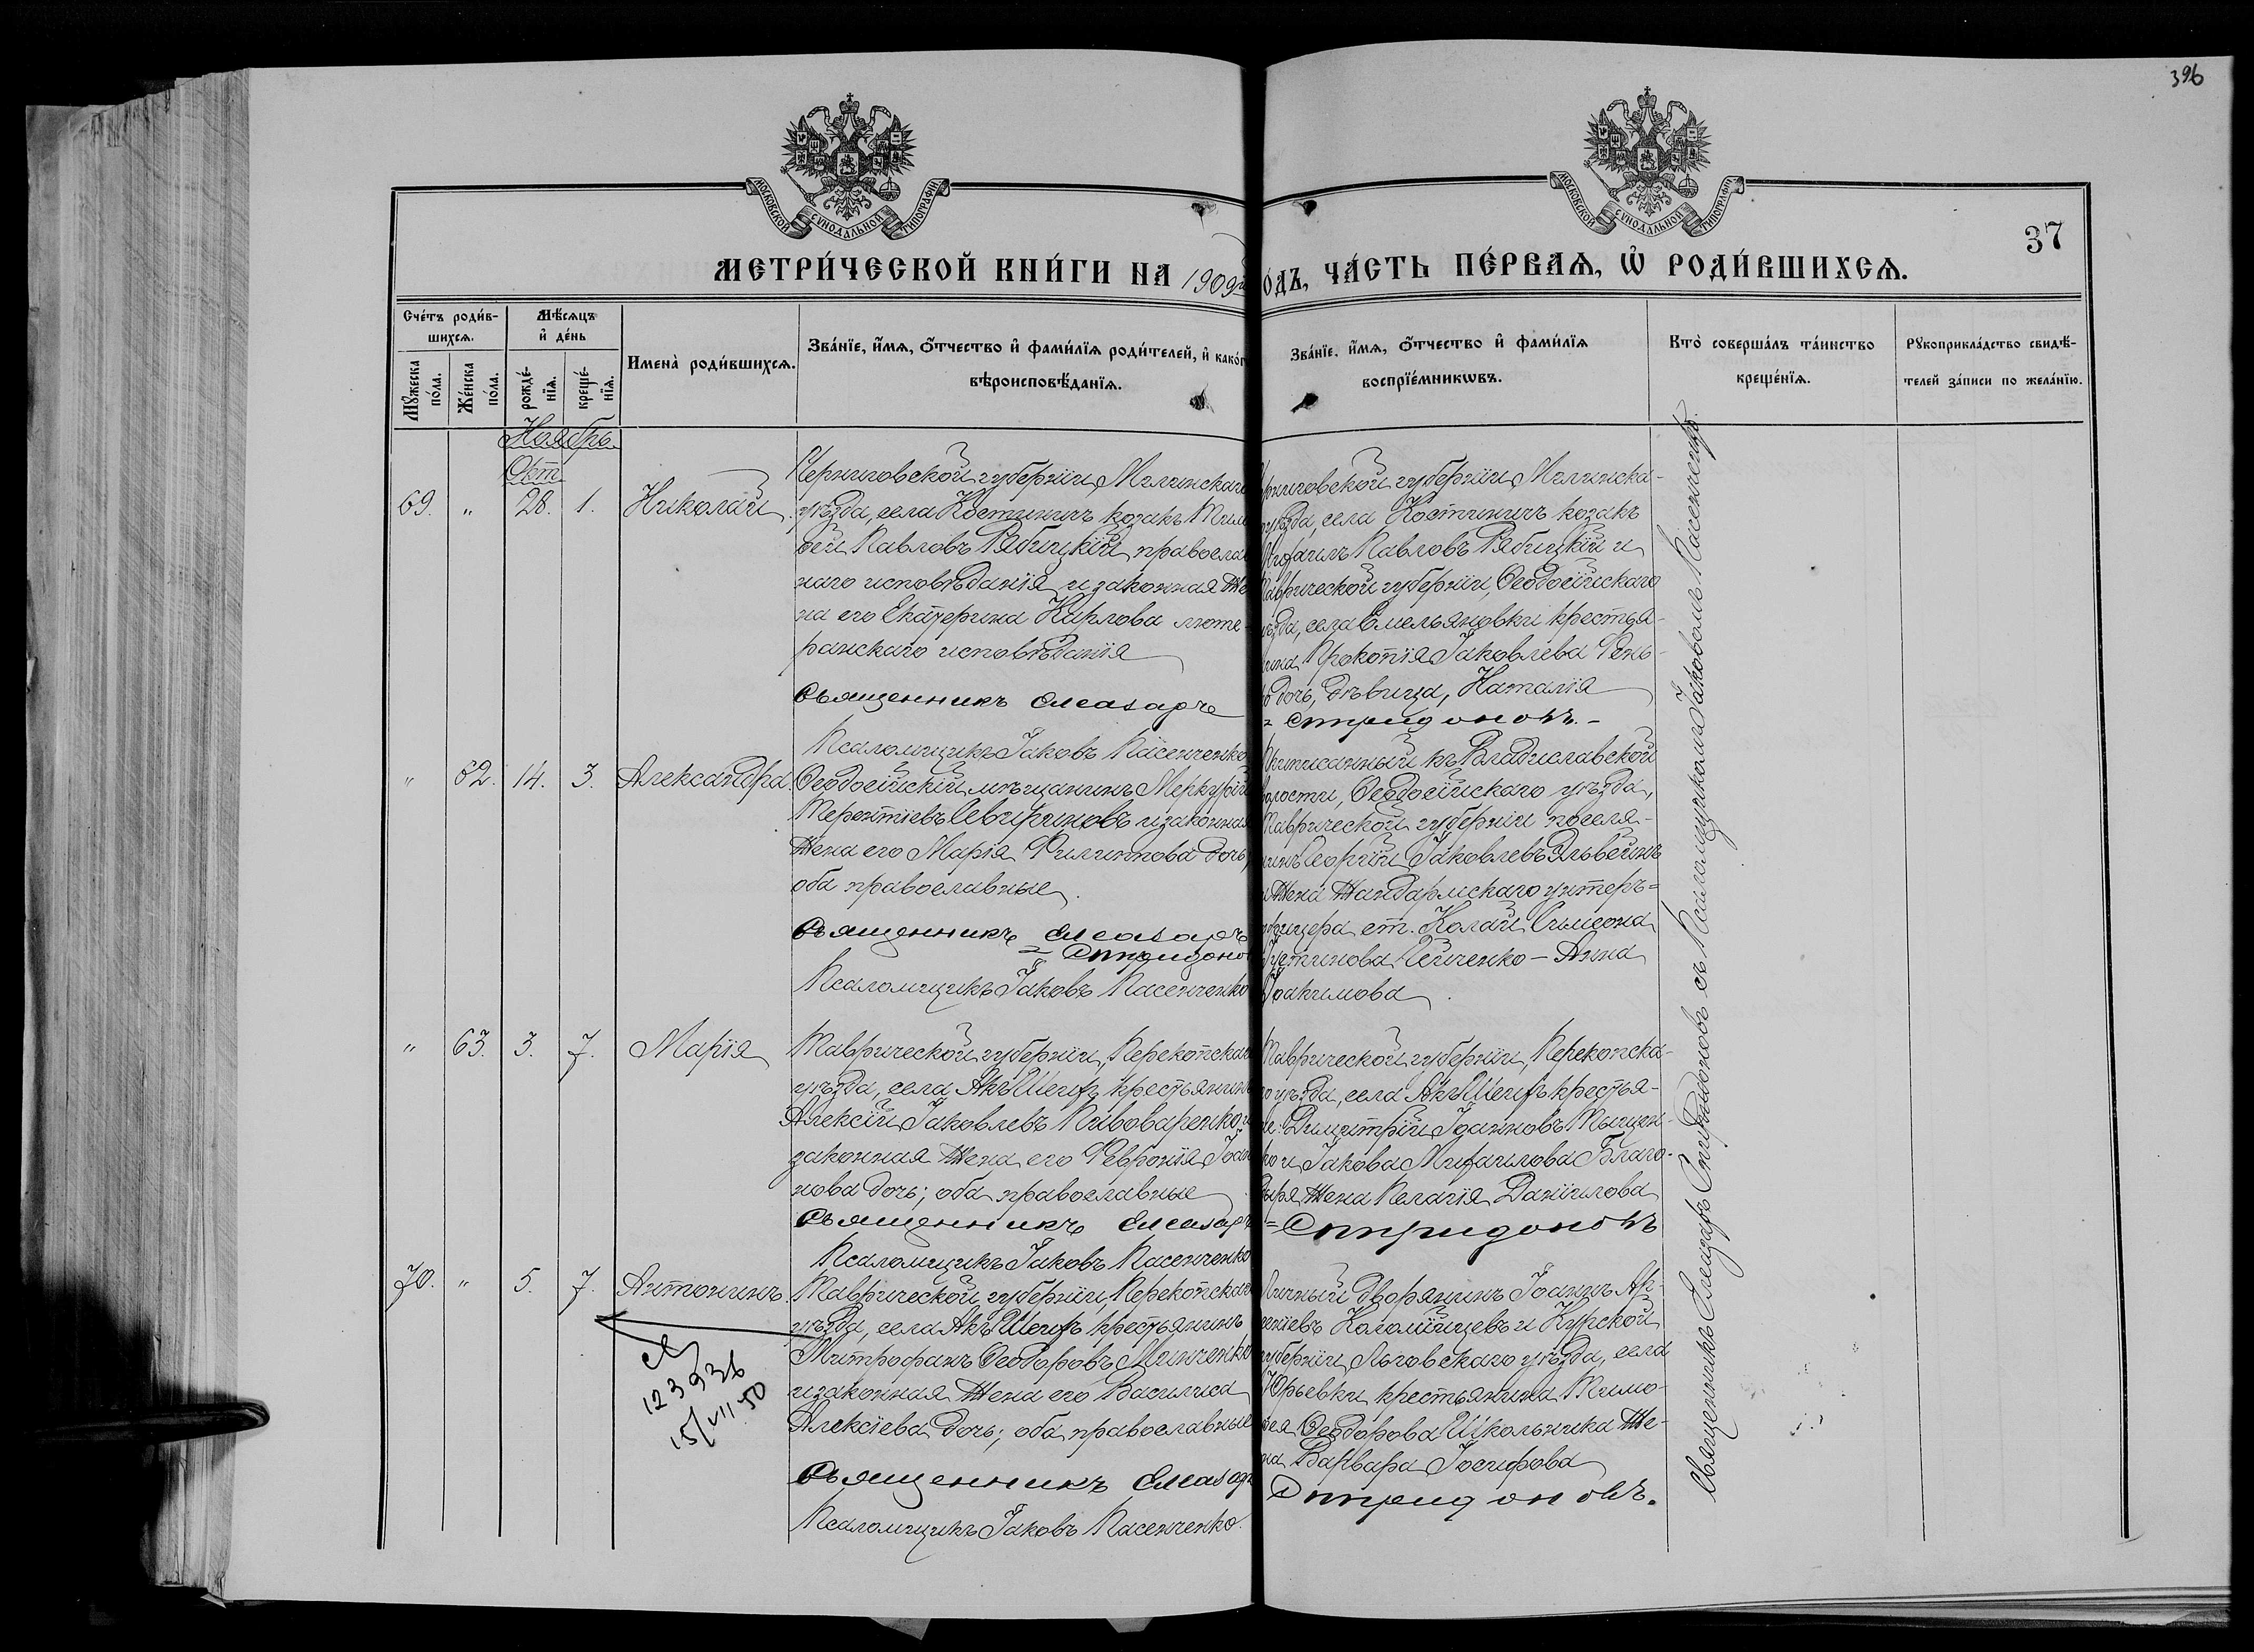 396
МОСКОВСКОЙ СУНОДАЛЬНОЙ ТИПОГРАФІИ
МОСКОВСКОЙ СУНОДАЛЬНОЙ ТИПОГРАФІИ
37
МЕТРИ́ЧЕСКОЙ КНИ́ГИ НА 1909 г
О́ДЪ, ЧА́СТЬ ПЕ́РВАѦ, Ѡ҆ РОДИ́ВШИХСѦ.
Сче́тъ роди́в-
шихсѧ.
Мѣ́сѧцъ
и҆ де́нь
Мꙋ́жеска по́ла.
Же́нска по́ла.
рожде́-
нїѧ.
креще́-
нїѧ.
Имена̀ роди́вшихсѧ.
Зва́нїе, и҆́мѧ, ѻ҆́тчество и҆ фами́лїѧ роди́телей, и҆ како́г
вѣроисповѣ́данїѧ.
Зва́нїе, и҆́мѧ, ѻ҆́тчество и҆ фами́лїѧ
воспрїе́мникѡвъ.
Кто̀ соверша́лъ та́инство
креще́нїѧ.
Рꙋкоприкла́дство свидѣ́-
телей за́писи по жела́нїю.
Ноябрь.
Окт.
69. " 28. 1. Николай
Черниговской губерніи, Мглинскаго
уѣзда, села Костиничъ козакъ Тимо
ѳей Павловъ Рябицкій православ
наго исповѣданія и законная же
на его Екатерина Карлова люте-
ранскаго исповѣданія
Священникъ Елеазаръ
Псаломщикъ Іаковъ Пасенченко
рниговской губерніи, Мглинска-
уѣзда, села Костиничъ козакъ
Михаилъ Павловъ Рябицкій и
Таврической губерніи, Ѳеодосійскаго
уѣзда, села Емельяновки крестья-
нина Прокопія Іаковлева
дочь, дѣвица, Наталія
= Спиридоновъ. -
" 62. 14. 3. Александра.
Ѳеодосійскій мѣщанинъ Меркурій
Терентіевъ Севириновъ и законная
жена его Марія Филиппова дочь,
оба православные.
Священникъ Елеазаръ
= Спиридоно
Псаломщикъ Іаковъ Пасенченко
Приписанный къ Владиславской
волости, Ѳеодосійскаго уѣзда,
Таврической губерніи поселя-
нинъ Георгій Іаковлевъ
и жена жандармскаго унтеръ=
офицера ст. Колай Симеона
Устинова Чейченко - Анна
Іоакимова.
" 63. 3. 7. Марія
Таврической губерніи, Перекопскаго
уѣзда, села Акъ Шеихъ крестьянинъ
Алексій Іаковлевъ Пивоваренко и
законная жена его Февронія Іоан
нова дочь; оба православные.
Священникъ Елеазаръ
Псаломщикъ Іаковъ Пасенченко
Таврической губерніи, Перекопска-
го уѣзда, села Акъ Шеихъ крестья-
не: Димитрій Іоанновъ Тыщен-
ко и Іакова Михаилова Благо-
дыря жена Пелагія Даніилова
= Спиридоновъ
70. " 5. 7. Антонинъ.
Таврической губерніи, Перекопскаго
уѣзда, села Акъ Шеихъ крестьянинъ
Митрофанъ Ѳеодоровъ Манченко
и законная жена его Василиса
Алексіева дочь; оба православные
Священникъ Елеазаръ
Псаломщикъ Іаковъ Пасенченко.
Личный дворянинъ Іоаннъ Ар-
сеніевъ Коломійцевъ и Курской
губерніи, Льговскаго уѣзда, села
Юрьевки крестьянина Тимо-
ѳея Ѳеодорова Школьника же-
на Варвара Іосифова
Спиридоновъ.
123936
15/VII 50
Священникъ Елеазаръ Спиридоновъ съ Псаломщикомъ Іаковомъ Пасенченко.